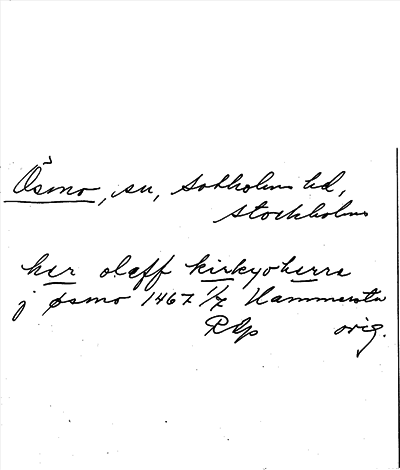 Ösmo, sn, Sotholms hd,
Stockholms
her oleff kirkyoherra
j øsmo 1467 1/7 Hammersta
RAp orig.